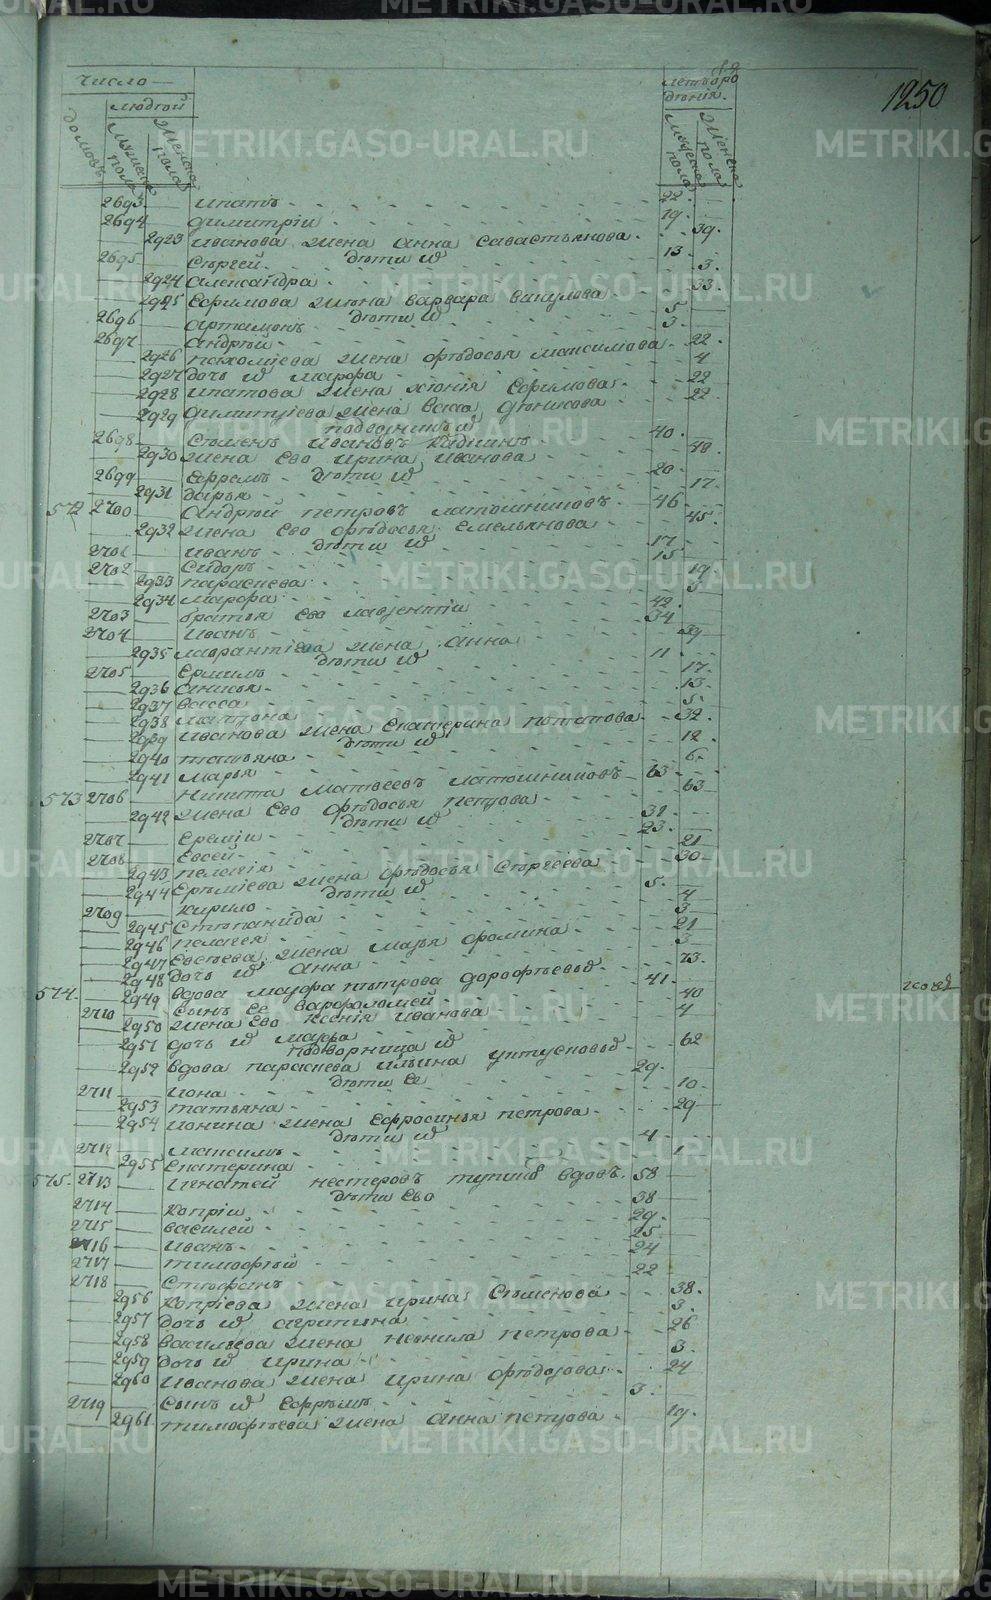 1250
Число
людѣй
домовъ
мужеска пола
женска пола
лѣтъ от рождѣния
мужеска пола
женска пола
2693 Ипатъ 22
2694 димитрiи 19
2923 Иванова жена Анна Савастьянова 39
дѣти и͏̈хъ
2695 Сѣргей 13
2924 Александра 3
2925 Ефимова жена варвара викулова 33
дѣти ихъ
2696 Артамонъ 5
2697 Андрѣй 3
2926 пахомiева жена Ѳрѣдосья максимова 22
2927 дочь ихъ марфа 4
2928 Ипатова жена хiонiя Ефимова 22
2929 димитрiева жена васса дѣнисова 22
подворники
2698 Сѣменъ Ивановъ 40
2930 жена Ево Ирина Иванова 48
дѣти ихъ
2699 Ефремъ 20
2931 дарья 17
572 2700 Андрѣй петровъ латошниковъ 46
2932 жена Ево Ѳѣдосья Емельянова 45
дѣти ихъ
2701 Иванъ 17
2702 Сидоръ 15
2933 параскева 19
2934 марфа 5
2703 братья Ево лаврентiи 42
2704 Иванъ 34
2935 лаврантiева жена Анна 39
дѣти ихъ
2705 Ермилъ 11
2936 анисья 17
2937 васса 13
2938 матрона 5
2939 Иванова жена Екатерина потапова 32
дѣти ихъ
2940 татьяна 12
2941 марья 6
573 2706 Никита матвеевъ латошниковъ 63
2942 жена Ево Ѳѣдосья петрова 63
дѣти ихъ
2707 Еремiи 31
2708 Евсей 23
2943 пелагiя 21
2944 Ерѣмiева жена Ѳѣдосья Сѣргеева 30
дѣти ихъ
2709 кирило 5
2945 Стѣпанида 4
2946 пелагея 3
2947 Евсѣева жена марья Ѳомина 21
2948 дочь ихъ Анна 3
574 2949 вдова марфа пѣтрова дорофѣевыхъ 73
2710 Сынъ Ее варфоломей 41
2950 жена Ево ксенiя Иванова 40
2951 дочь ихъ марья 4
подворница ихъ
2952 вдова параскева Ильина 62
дѣти Ее
2711 Иона 29
2953 татьяна 10
2954 Ионина жена Ефросинья петрова 29
дѣти ихъ
2712 максимъ 4
2955 Екатерина 1
575 2713 Игнатей нестеровъ вдовъ 58
дѣти Ево
2714 Копрiи 38
2715 василей 29
2716 Иванъ 25
2717 тимофѣй 24
2718 Стѣфанъ 22
2956 Копрiева жена Ирина Сѣменова 38
2957 дочь ихъ агрипина 3
2958 васильева жена неонила петрова 26
2959 дочь ихъ Ирина 3
2960 Иванова жена Ирина Ѳѣдорова 24
2719 Сынъ ихъ Ефрѣмъ 3
2961 тимофѣева жена Анна петрова 19